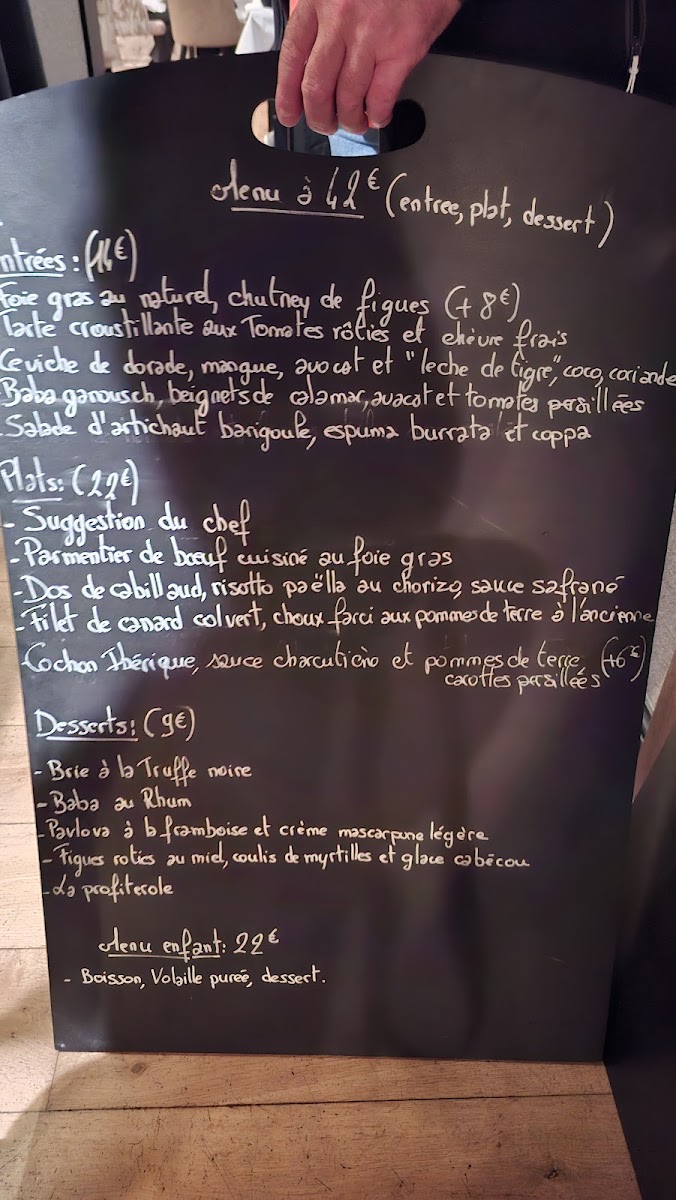 Menu à 42€ (entree, plat, dessert)
ntrées: (16€)
Foie gras au naturel, chutney de figues (+8€)
Tarte croustillante aux Tomates rôties et chèvre frais
Ceviche de dorade, mangue, avocat et "leche de tigre", coco, coriande
Baba ganousch, beignets de calamar, avacat et tomates persillées
Salade d'artichaut barigoule, espuma burrata et coppa
Plats: (22€)
- Suggestion du chef
- Parmentier de bœuf cuisiné au foie gras
- Dos de cabillaud, risotto paëlla au chorizo, sauce safrané
- Filet de canard colvert, choux farci aux pommes de terre à l'ancienne
Cochon Ibérique, sauce charcutière et pommes de terre (+6€)
carottes persillées
Desserts: (9€)
- Brie à la Truffe noire
- Baba au Rhum
- Pavlova à la framboise et crème mascarpone légère
- Figues roties au miel, coulis de myrtilles et glace cabécou
- La profiterole
Menu enfant: 22€
- Boisson, Volaille purée, dessert.